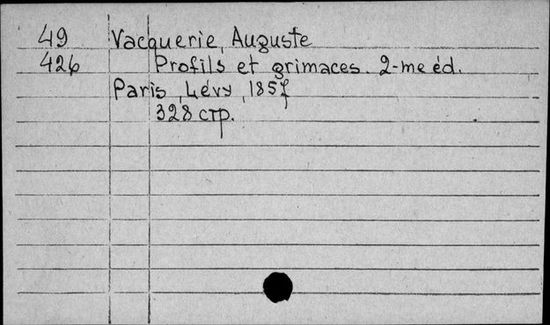 49 Vacquerie, Auguste
426 Profils et grimaces. 2-me éd.
Paris, Lévy, 1857
328 стр.